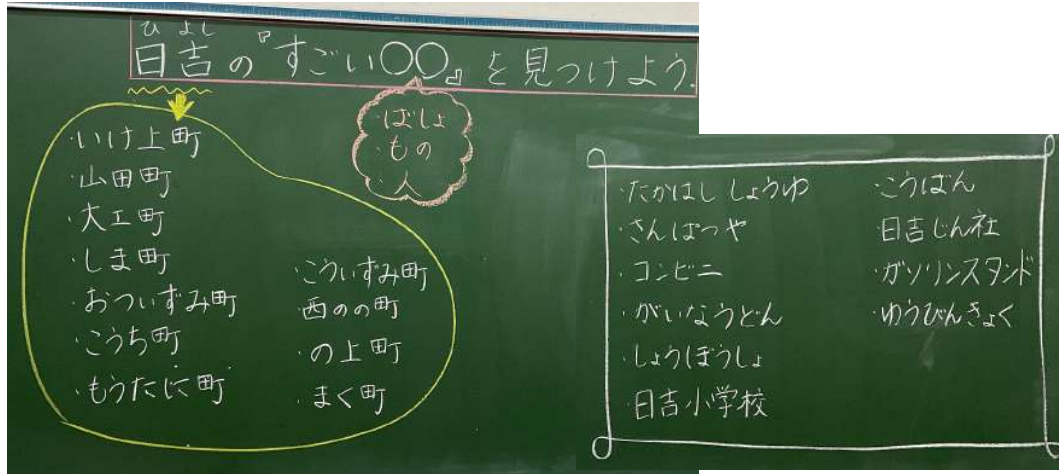 ひよし
日吉の『すごい○○』を見つけよう.
・ばしょ
・もの
・人
・いけ上町
・山田町
・大工町
・しま町
・おついずみ町
・こうち町
・もうたに町
・こういずみ町
・西のの町
・の上町
・まく町
・たかはししょうゆ
・さんぱつや
・コンビニ
・がいなうどん
・しょうぼうしょ
・日吉小学校
・こうばん
・日吉じん社
・ガソリンスタンド
・ゆうびんきょく